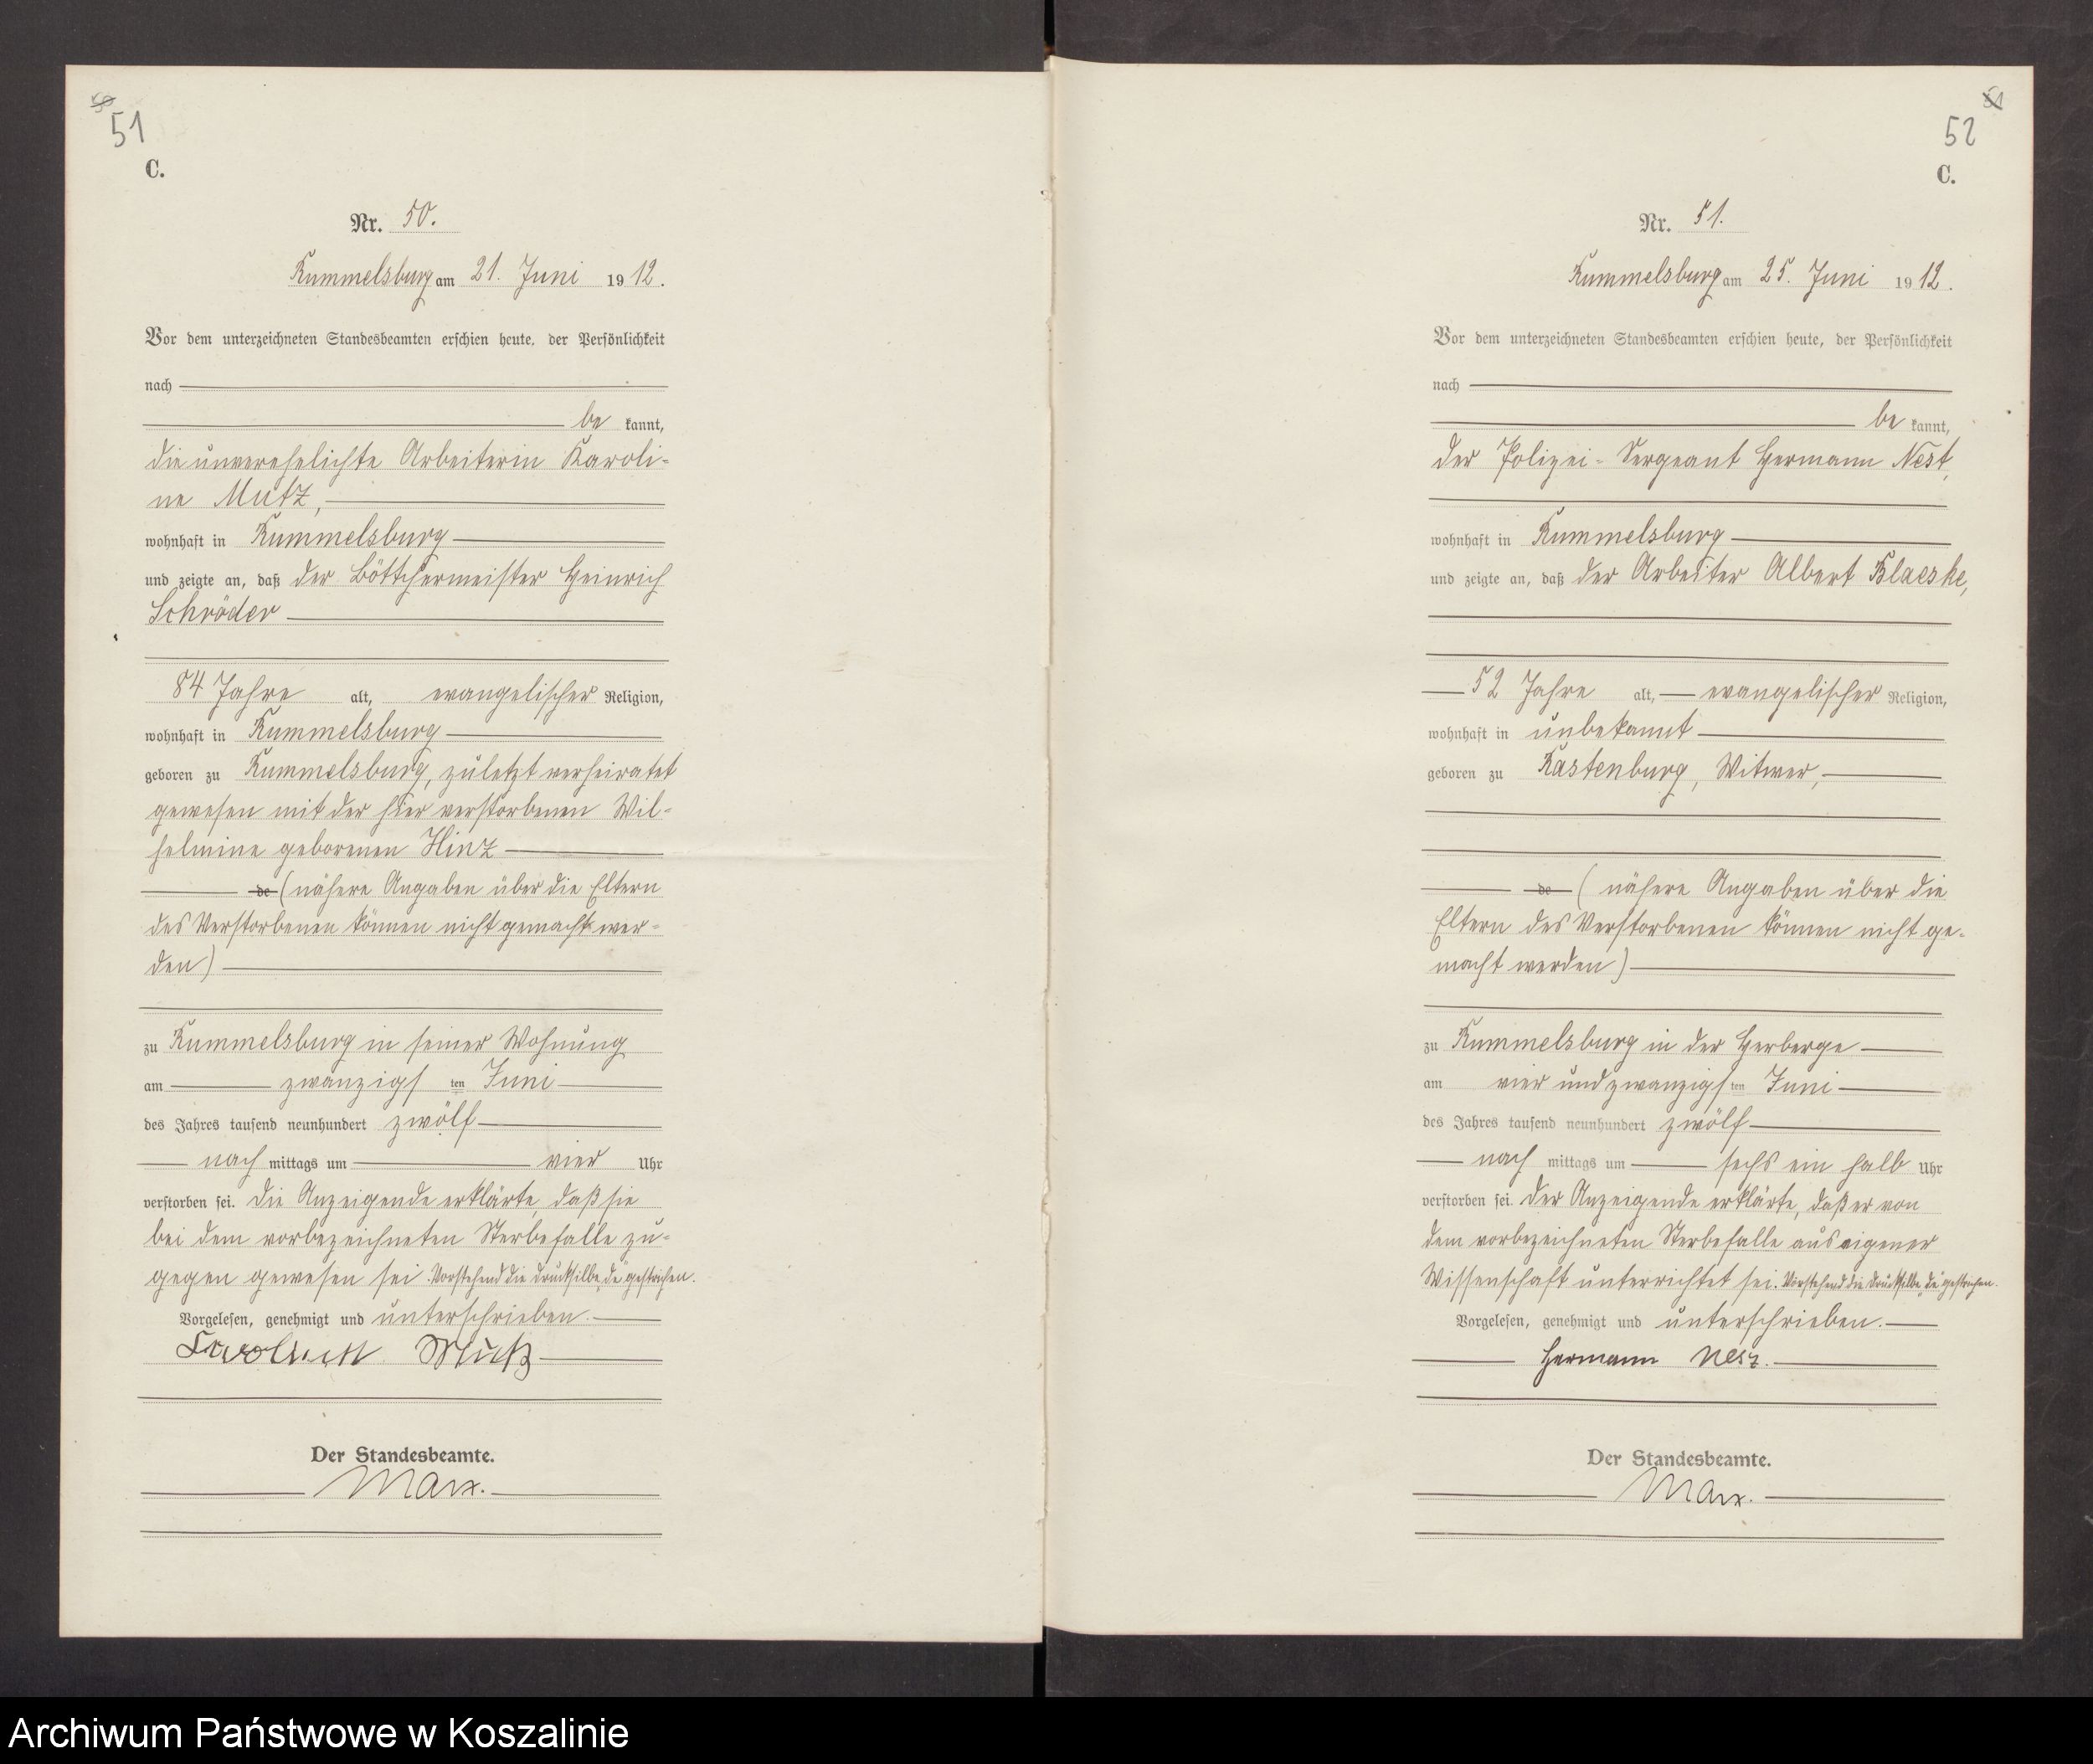 50
51
C.
Nr. 50.
Rummelsburg am 21. Juni 1912.
Vor dem unterzeichneten Standesbeamten erschien heute, der Persönlichkeit
nach
be kannt,
die unverehelichte Arbeiterin Karoli-
ne Mutz,
wohnhaft in Rummelsburg
und zeigte an, daß der Böttchermeister Heinrich
Schröder
84 Jahre alt, evangelischer Religion,
wohnhaft in Rummelsburg
geboren zu Rummelsburg, zuletzt verheiratet
gewesen mit der hier verstorbenen Wil-
helmine geborenen Hinz
de (nähere Angaben über die Eltern
des Verstorbenen können nicht gemacht wer-
den)
zu Rummelsburg in seiner Wohnung
am zwanzigs ten Juni
des Jahres tausend neunhundert zwölf
nach mittags um vier Uhr
verstorben sei. Die Anzeigende erklärte, daß sie
bei dem vorbezeichneten Sterbefalle zu-
gegen gewesen sei. Vorstehend die Drucksilbe „de“ gestrichen.
Vorgelesen, genehmigt und unterschrieben.
Mutz
Der Standesbeamte.
Marx.
51
52
C.
Nr. 51.
Rummelsburg am 25. Juni 1912.
Vor dem unterzeichneten Standesbeamten erschien heute, der Persönlichkeit
nach
be kannt,
der Polizei-Sergeant Hermann Nest,
wohnhaft in Rummelsburg
und zeigte an, daß der Arbeiter Albert Blaeske,
52 Jahre alt, evangelischer Religion,
wohnhaft in unbekannt
geboren zu Rastenburg, Witwer,
de (nähere Angaben über die
Eltern des Verstorbenen können nicht ge-
macht werden)
zu Rummelsburg in der Herberge
am vier und zwanzigs ten Juni
des Jahres tausend neunhundert zwölf
nach mittags um sechs ein halb Uhr
verstorben sei. Der Anzeigende erklärte, daß er von
dem vorbezeichneten Sterbefalle aus eigener
Wissenschaft unterrichtet sei. Vorstehend die Drucksilbe „de“ gestrichen.
Vorgelesen, genehmigt und unterschrieben.
Hermann
Der Standesbeamte.
Marx.
Archiwum Państwowe w Koszalinie